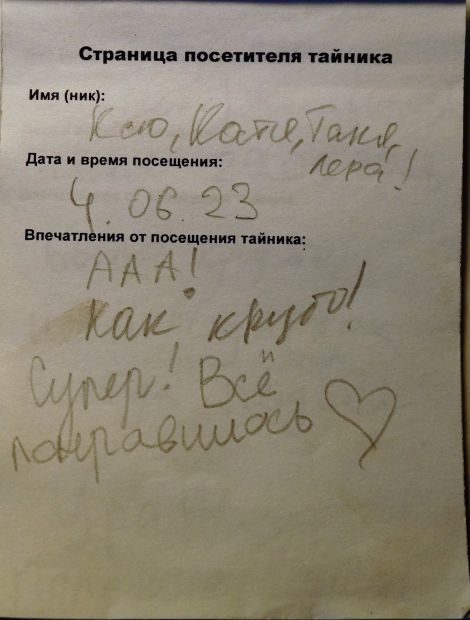 Страница посетителя тайника
Имя (ник):
Ксю, Катя, Таня,
Лера!
Дата и время посещения:
4. 06. 23
Впечатления от посещения тайника:
ААА!
Как круто!
Супер! Всё
понравилось